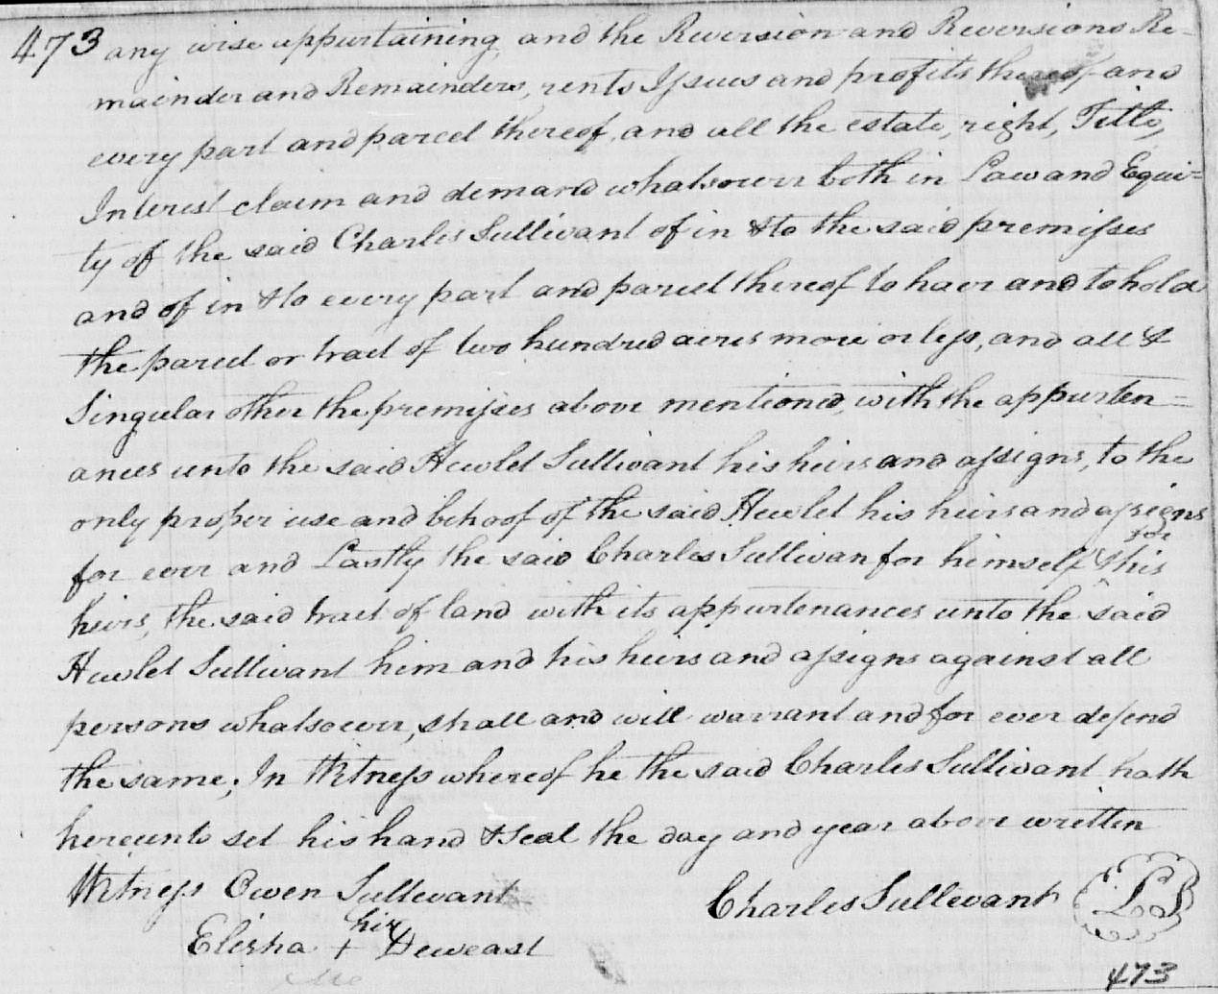 473 any wise appurtaining and the Reversion and Reversions Re-
mainder and Remainders, rents Issues and profits thereof and
every part and parcel thereof, and all the estate, right, Title,
Interest claim and demand whatsoever both in Law and Equi=
ty of the said Charles Sullivant of in & to the said premisses
and of in & to every part and parcel thereof to have and to hold
the parcel or tract of two hundred acres more or less, and all &
Singular other the premisses above mentioned, with the appurten=
ances unto the said Hewlet Sullivant his heirs and assigns, to the
only proper use and behoof of the said Hewlet his heirs and assigns
for ever and Lastly the said Charles Sullivan for himself & for his
heirs, the said tract of land with its appurtenances unto the said
Hewlet Sullivant him and his heirs and assigns against all
persons whatsoever, shall and will warrant and for ever defend
the same; In Witness whereof he the said Charles Sullivant hath
hereunto set his hand & Seal the day and year above written
Witness Owen Sullevant Charles Sullevant LS
his
Elisha + Deweast
473